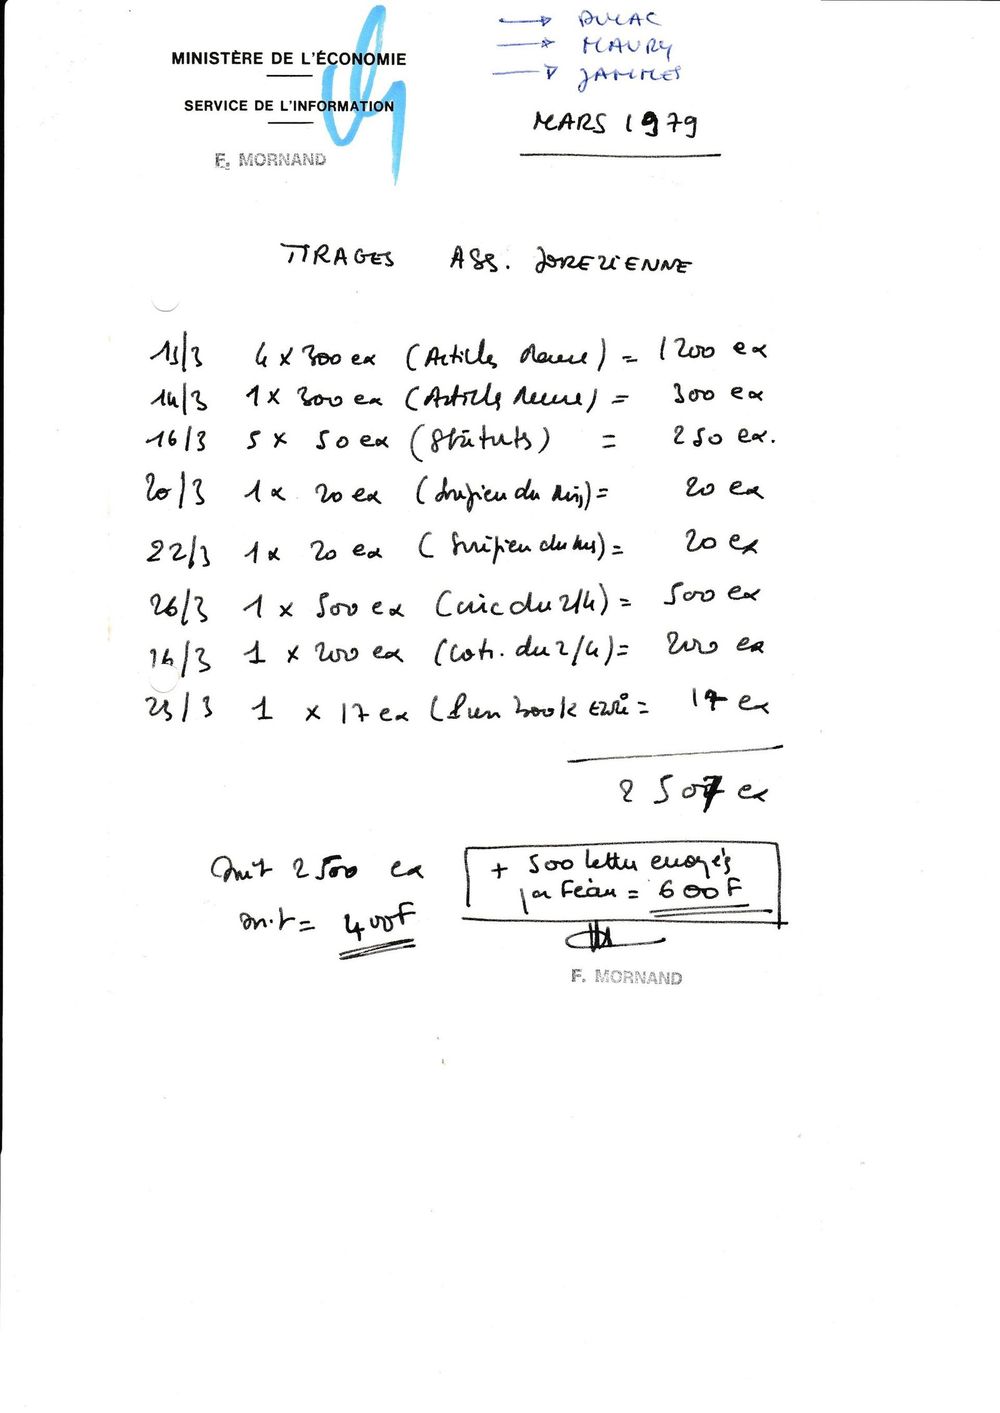 → DULAC
→ MAURY
→ JAMMES
MINISTÈRE DE L'ÉCONOMIE
SERVICE DE L'INFORMATION
F. MORNAND
MARS 1979
TIRAGES ASS. FOREZIENNE
13/3 4 x 300 ex (Article Revue) = 1200 ex
14/3 1 x 300 ex (Article Revue) = 300 ex
16/3 5 x 50 ex (Statuts) = 250 ex.
20/3 1 x 20 ex ( du ) = 20 ex
22/3 1 x 20 ex ( du ) = 20 ex
26/3 1 x 500 ex (circ du 2/4) = 500 ex
1 x 200 ex (coti. du 2/4) = 200 ex
23/3 1 x 17 ex ( = 17 ex
2507 ex
soit 2500 ex
= 400F
+ 500 lettres envoyés
par = 600F
F. MORNAND